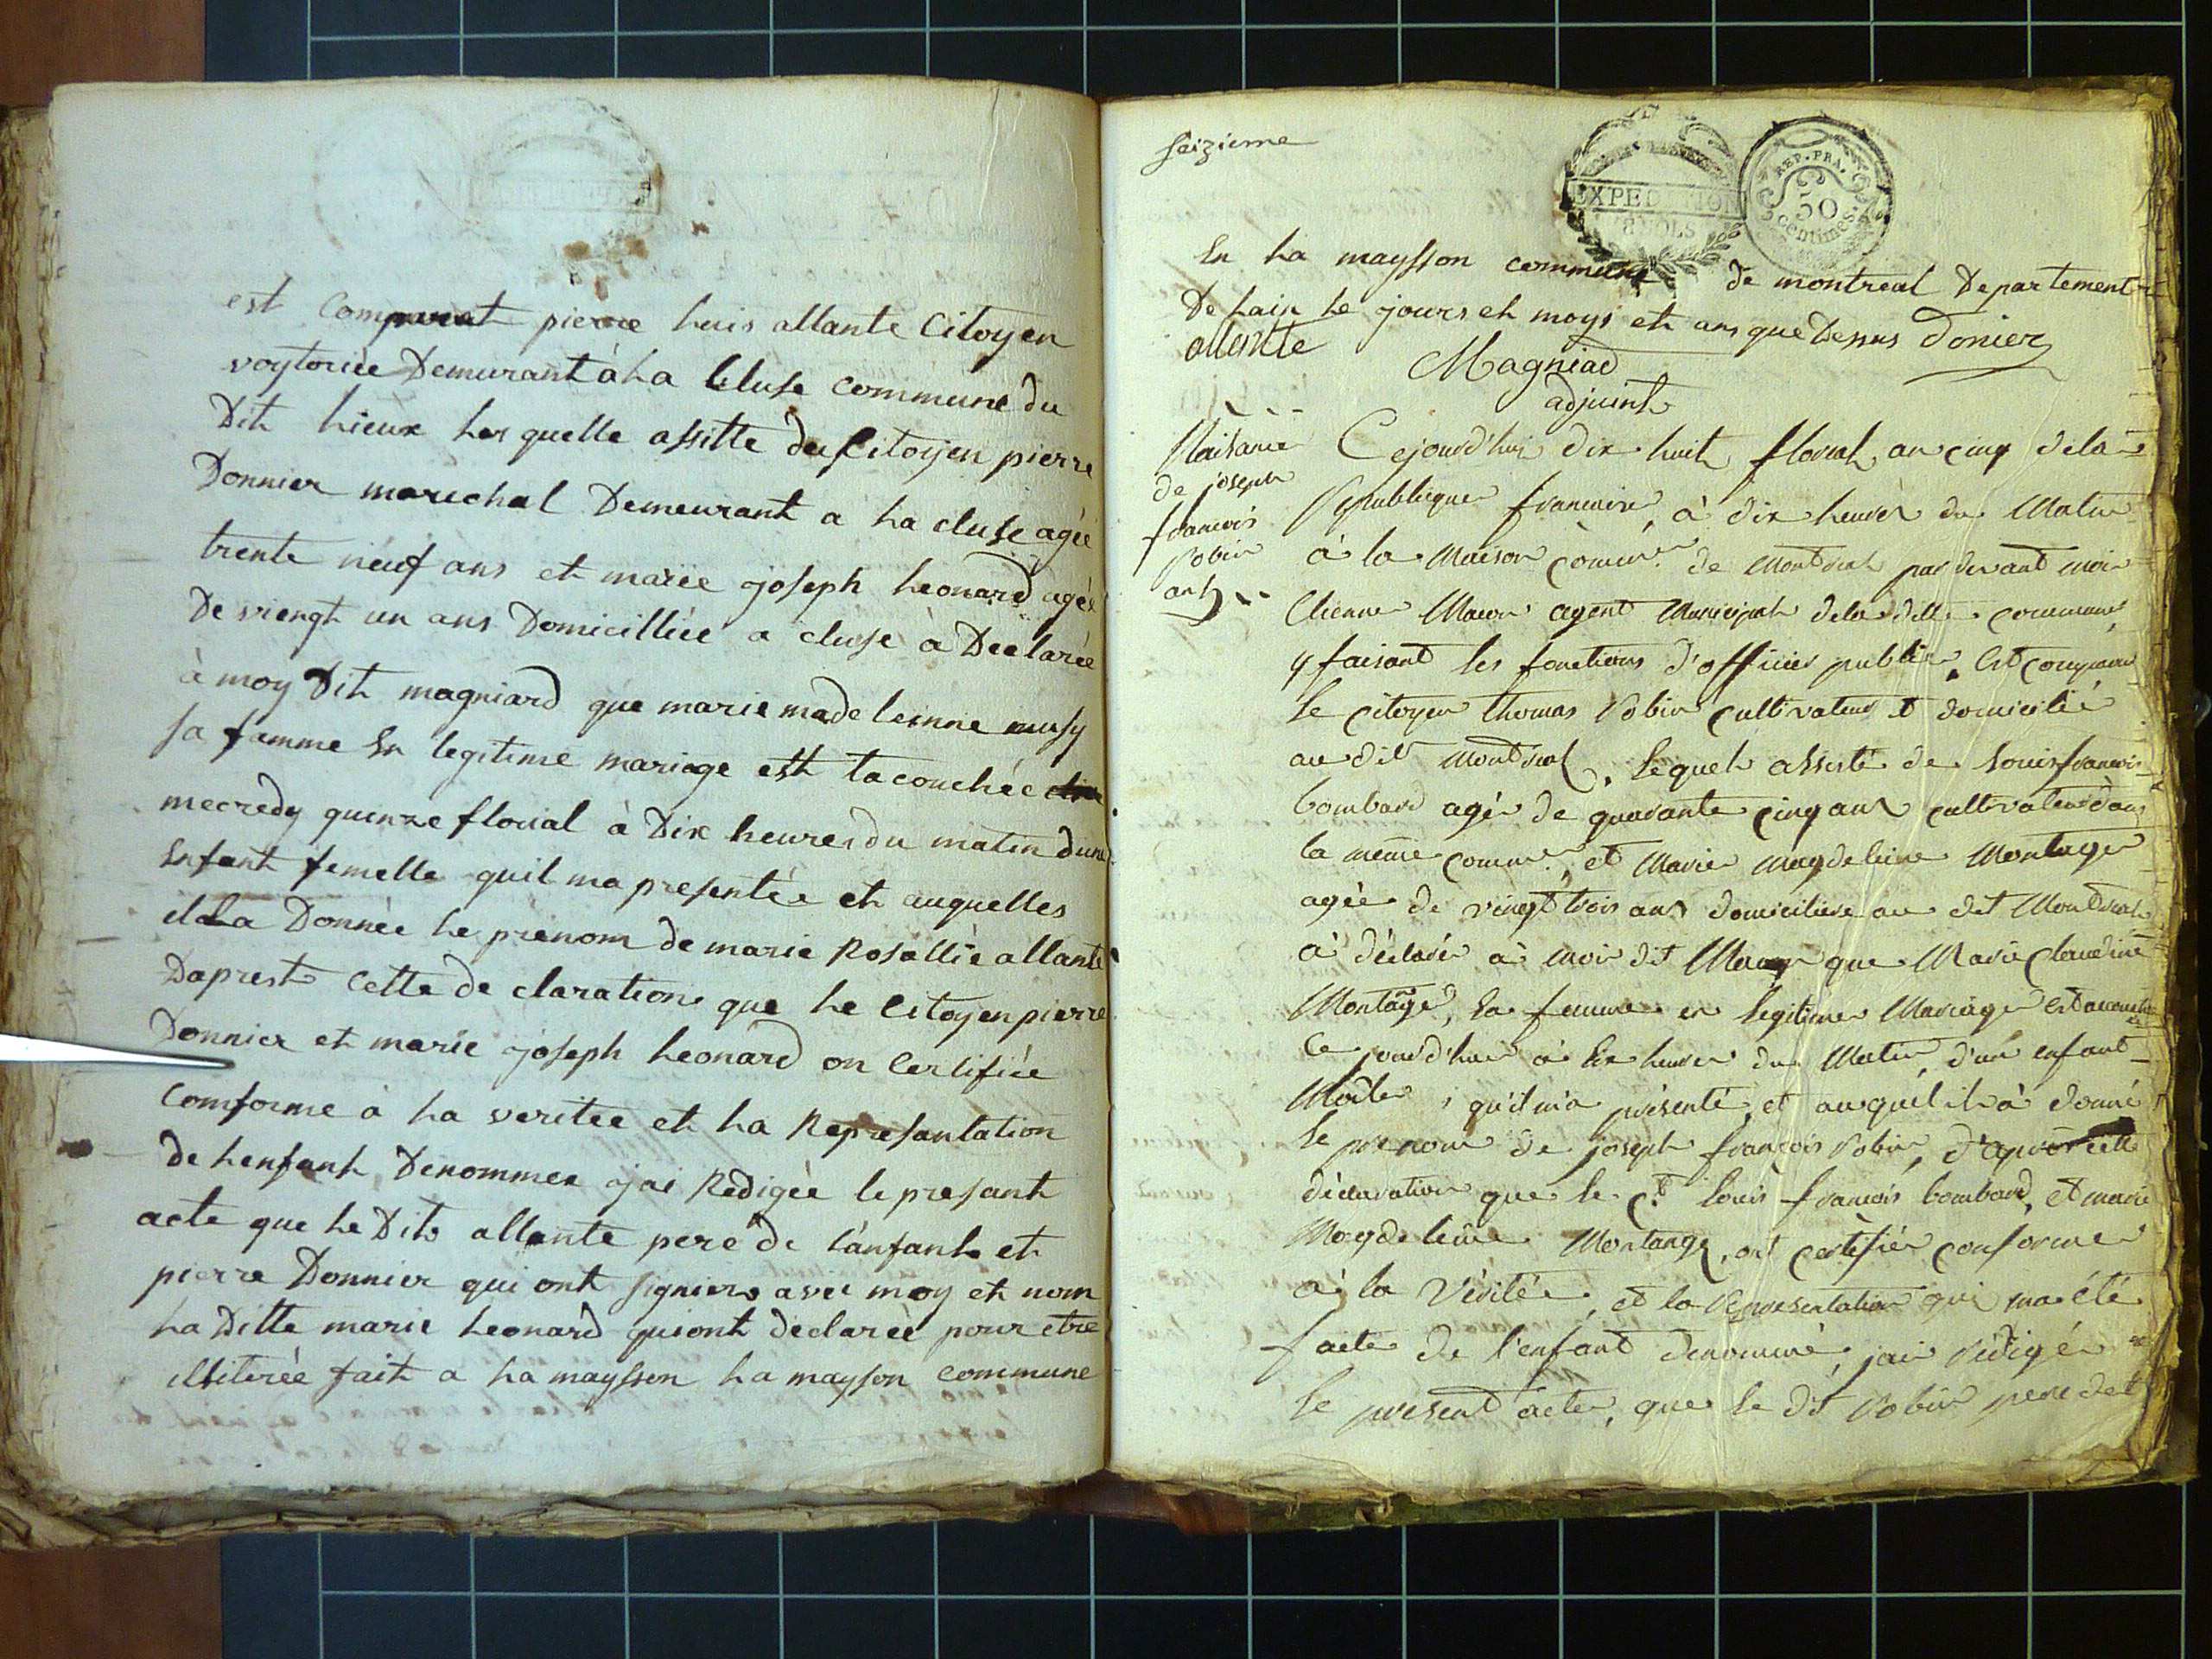 est Comparut pierre huis allante Citoyen
voytoriée Demurant à ha Cluse commune du
Dit hieux her quelle assitte du Citoyen pierre
Donnier marechal Demeurant a ha cluse agée
trente neuf ans et mariée joseph heonard agée
De viengt un ans Domicilliée a cluse à Déclarée
à moy Dit magniard que marie madeleinne musy
sa famme En legitime mariage est tacouchée
mecredy quinze florial à Dix heures du matin dune
Enfant femelle quil ma presentée et auquelles
il ha Donnée he prenom de marie Rosallie allante
Daprest Cette de claration que he Citoyen pierre
Donnier et marie joseph heonard on Certifiée
Comforme a ha veritee et ha Represantation
de henfant Denommer jai Redigée le presant
acte que he Dits allante pere de l'anfant et
pierre Donnier qui ont signiers avec moy et nom
ha Ditte marie heonard quiont déclarée pour etre
illiterée fait a ha maysson ha mayson Commune
seizieme
EXPEDITION
8 SOLS
REP. FRA.
50
Centimes
En ha maysson commune de montreal Departement
De hain he jours et moys et ans que Dessus Donier
allante
Magniad
adjuint
Naisance
de joseph
francois
Robin
Cejourd'hui dix huit florial an cinq de la
Republique francaise, à dix heures du Matin
à la Maison comune de Montréal par devant moi
Etienne Macon agent Municipal de la ditte commune,
y faisant les fonctions d'officier public, est comparu
le citoyen thomas Robin cultivateur et domicilié
au dit Montréal, lequel assisté de louis francois
bombard agé de quarante cinq ans cultivateur dans
la même commune, et Marie Magdeleine Montange
agée de vingt trois ans domiciliée au dit Montréal
à déclaré à moi dit Macon que Marie Claudine
Montange, sa femme en legitime Mariage est accouchée
Ce jourd'hui à six heures du Matin, d'un enfant
Mâle, qu'il m'a présenté, et auquel il à donné
le prenom de joseph françois Robin, d'après cette
déclaration que le Ct louis francois bombard, et marie
Magdeleine Montange, ont certifiée conforme
à la Vérité, et la Représentation qui m'a été
faite de l'enfant denommé, j'ai rédigé
le présent acte, que le dit Robin pere de l